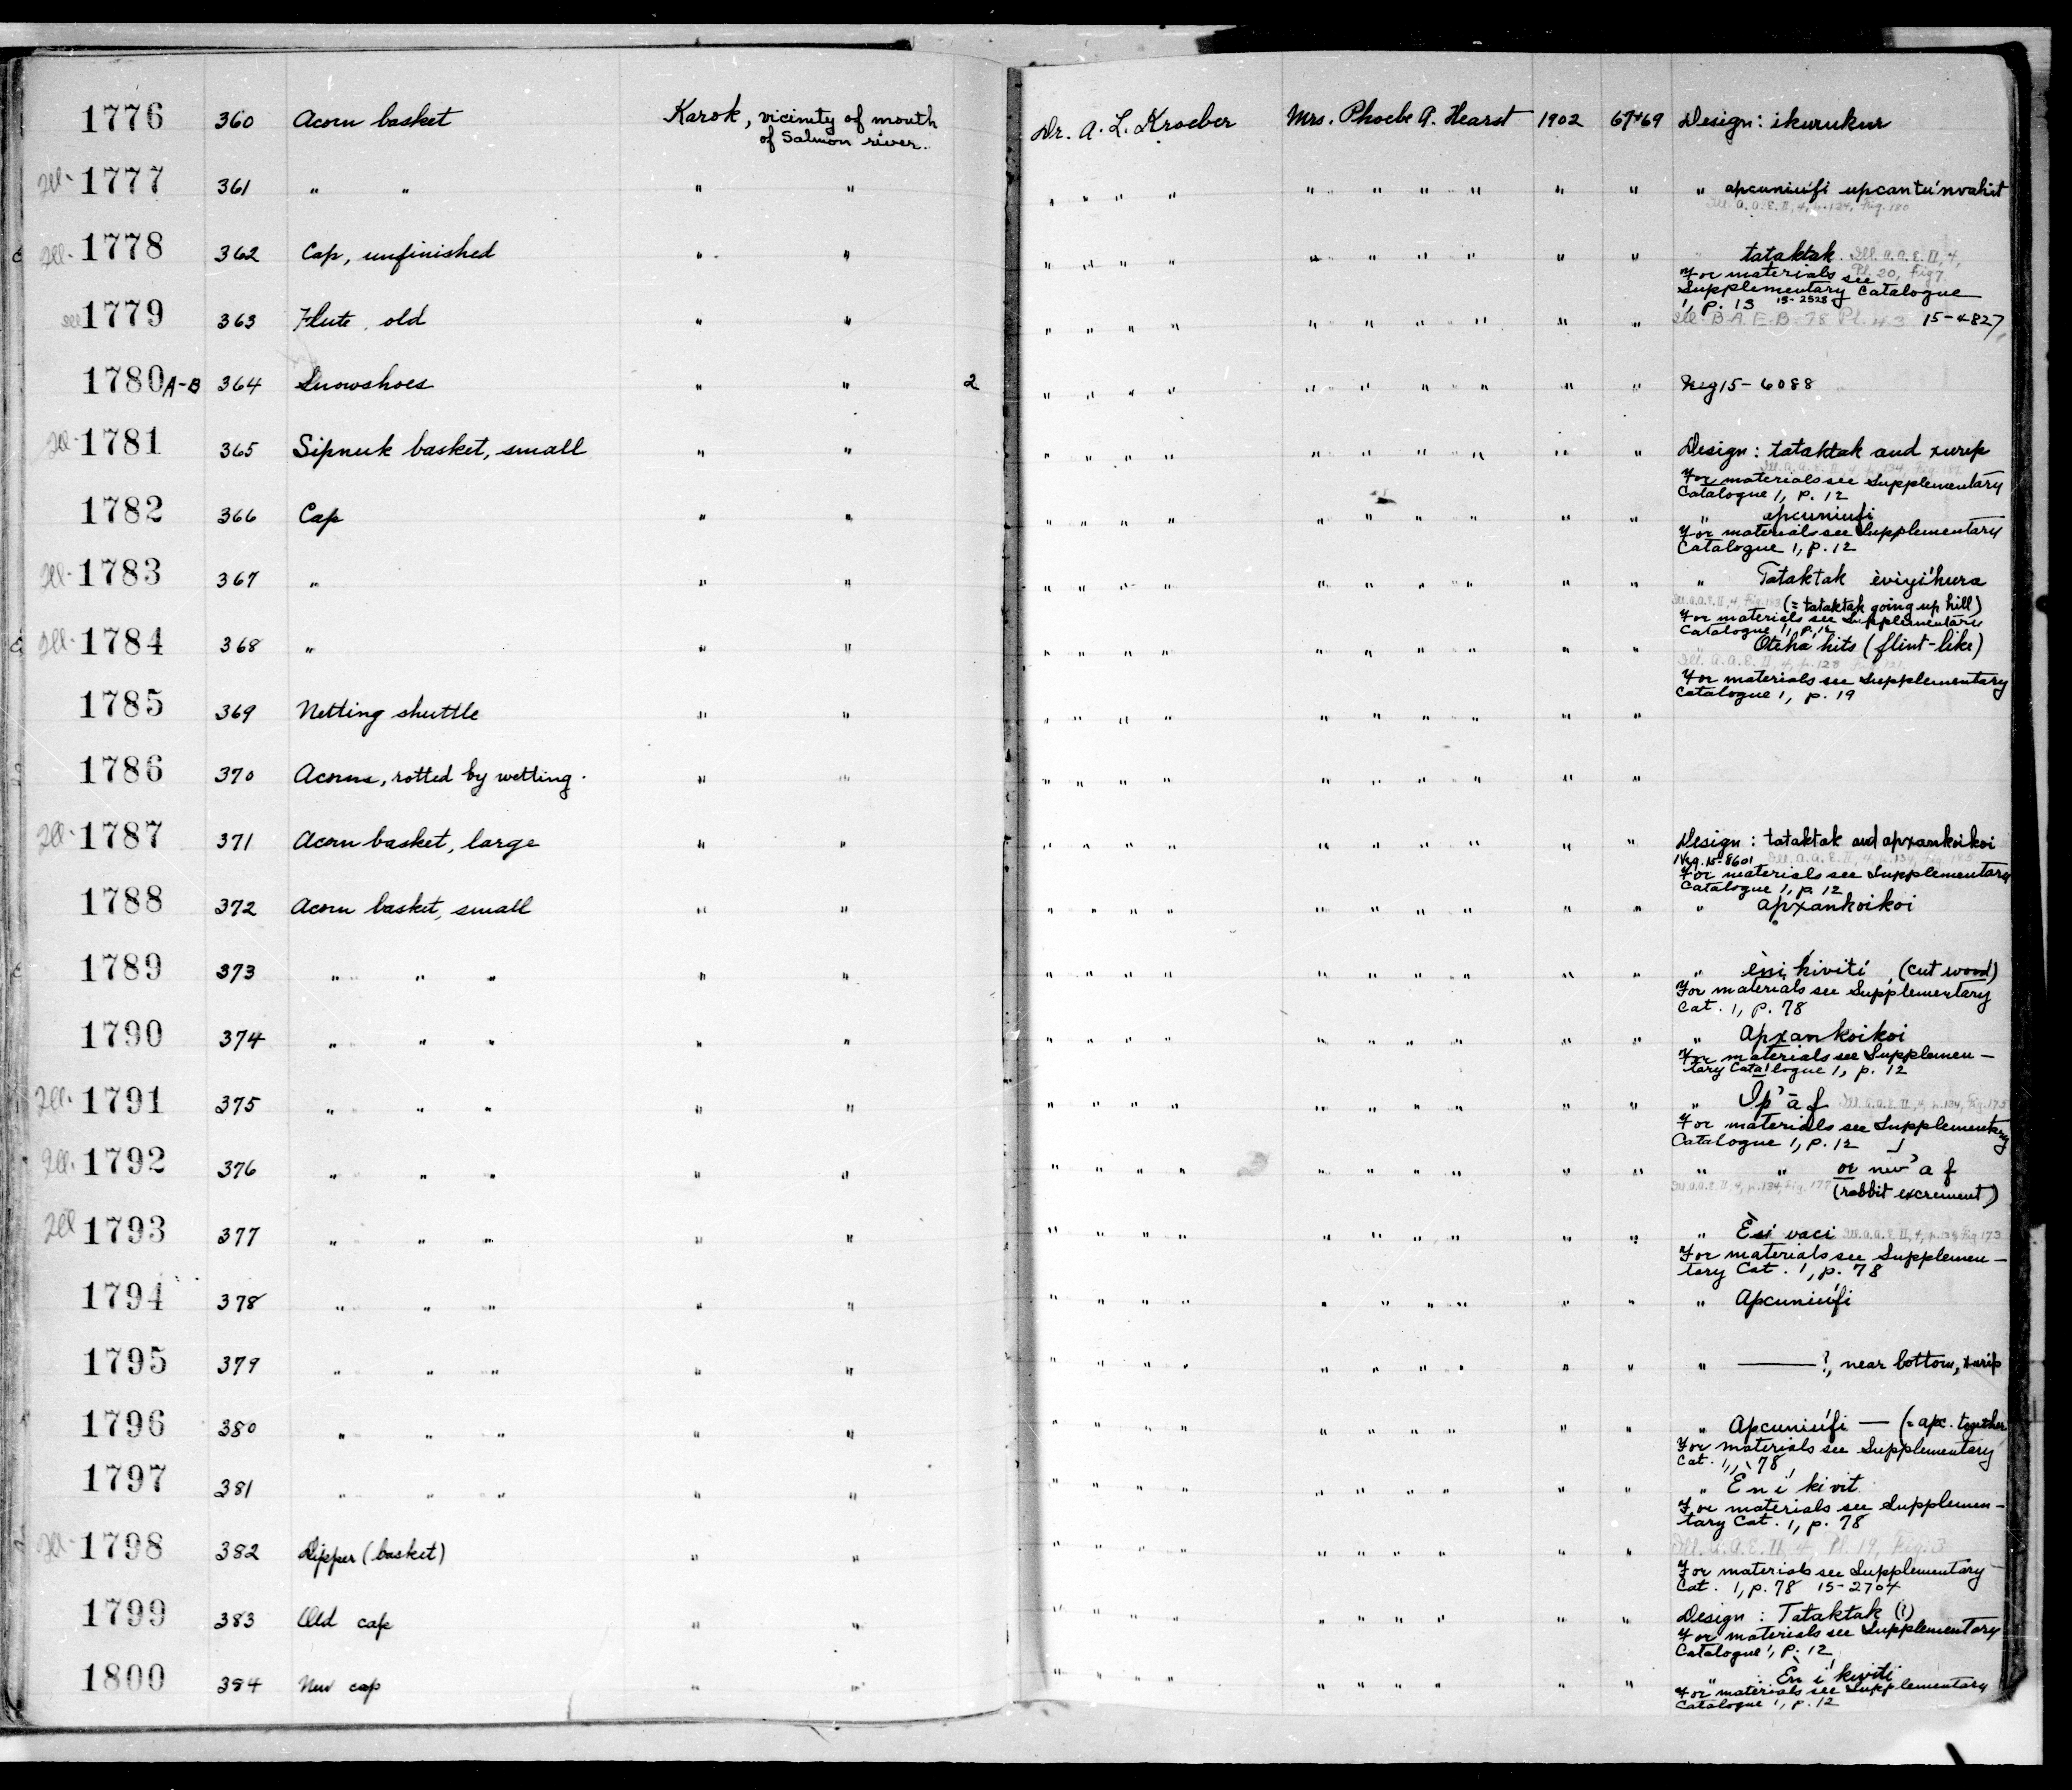 1776 360 Acorn basket Karok, vicinity of mouth of Salmon river. Dr. A. L. Kroeber Mrs. Phoebe A. Hearst 1902 67+69 Design: ikurukur
Ill. 1777 361 " " " " " " " " " " " " " " " apcuniufi upcantunvahit
Ill. A.A.E. II, 4, p. 134, Fig. 180
Ill. 1778 362 Cap, unfinished " " " " " " " " " " " " tataktak. Ill. A.A.E. II, 4, Pl. 20, Fig 7
For materials see
Supplementary Catalogue
1, p. 13 15-2528
1779 363 Flute, old " " " " " " " " " " " " Ill. B.A.E. B. 78 Pl. 43 15-4827
1780 A-B 364 Snowshoes " " 2 " " " " " " " " " " Neg 15-6088
Ill. 1781 365 Sipnuk basket, small " " " " " " " " " " " " Design: tataktak and xurip
Ill. A.A.E. II, 4, p. 134, Fig.
For materials see Supplementary
Catalogue 1, p. 12
1782 366 Cap " " " " " " " " " " " " " apcuniufi
For materials see Supplementary
Catalogue 1, p. 12
Ill. 1783 367 " " " " " " " " " " " " " " Tataktak èviyi'hura
Ill. A.A.E. II, 4, Fig. (= tataktak going up hill)
For materials see Supplementary
Catalogue 1, p. 12
Ill. 1784 368 " " " " " " " " " " " " " Oteha hits (flint-like)
Ill. A.A.E. II, 4, p. 128
For materials see Supplementary
Catalogue 1, p. 19
1785 369 Netting shuttle " " " " " " " " " " " "
1786 370 Acorns, rotted by wetting. " " " " " " " " " " " "
Ill. 1787 371 Acorn basket, large " " " " " " " " " " " " Design: tataktak and apxankoikoi
Neg. 15-8601 Ill. A.A.E. II, 4, p. 134, Fig.
For materials see Supplementary
Catalogue 1, p. 12
1788 372 Acorn basket, small " " " " " " " " " " " " " apxankoikoi
1789 373 " " " " " " " " " " " " " " " " èni kiviti (cut wood)
For materials see Supplementary
Cat. 1, p. 78
1790 374 " " " " " " " " " " " " " " " " Apxankoikoi
For materials see Supplemen-
tary Catalogue 1, p. 12
Ill. 1791 375 " " " " " " " " " " " " " " " " Ip'āf Ill. A.A.E. II, 4, p. 134, Fig. 175
For materials see Supplementary
Catalogue 1, p. 12
Ill. 1792 376 " " " " " " " " " " " " " " " " " or niv'af
Ill. A.A.E. II, 4, p. 134, Fig. 177 (rabbit excrement)
Ill 1793 377 " " " " " " " " " " " " " " " " Èsi vaci Ill. A.A.E. II, 4, p. 134 Fig 173
For materials see Supplemen-
tary Cat. 1, p. 78
1794 378 " " " " " " " " " " " " " " " " Apcuniufi
1795 379 " " " " " " " " " " " " " " " " ——?, near bottom, xurip
1796 380 " " " " " " " " " " " " " " " " Apcuniufi — (= apc. together
For materials see Supplementary
Cat. 1, 78
1797 381 " " " " " " " " " " " " " " " " Eni kivit
For materials see Supplemen-
tary Cat. 1, p. 78
Ill. 1798 382 Dipper (basket) " " " " " " " " " " " " Ill. A.A.E. II, 4, Pl. 19, Fig. 3
For materials see Supplementary
Cat. 1, p. 78 15-2704
1799 383 Old cap " " " " " " " " " " " " Design: Tataktak (?)
For materials see Supplementary
Catalogue 1, p. 12
1800 384 New cap " " " " " " " " " " " " " En i kiviti
For materials see Supplementary
Catalogue 1, p. 12